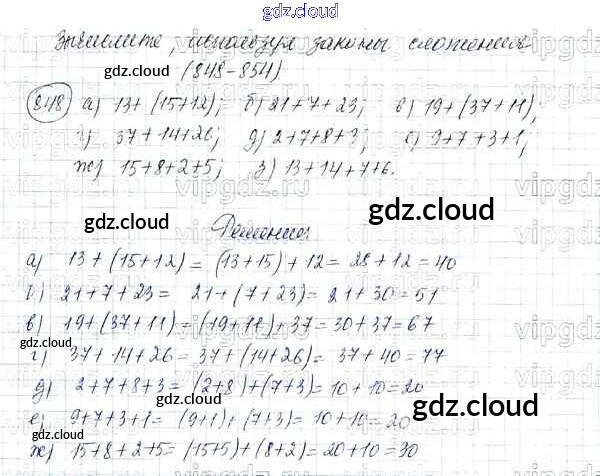 gdz.cloud
Вычислите, используя законы сложения
gdz.cloud (848-854)
848 а) 13+(15+12); б) 21+7+23; в) 19+(37+11);
г) 37+14+26; д) 2+7+8+3; е) 9+7+3+1;
ж) 15+8+2+5; з) 13+14+7+6.
gdz.cloud gdz.cloud
Решение:
а) 13+(15+12) = (13+15)+12 = 28+12 = 40
б) 21+7+23 = 21+(7+23) = 21+30 = 51
в) 19+(37+11) = (19+11)+37 = 30+37 = 67
г) 37+14+26 = 37+(14+26) = 37+40 = 77
gdz.cloud
д) 2+7+8+3 = (2+8)+(7+3) = 10+10 = 20
е) 9+7+3+1 = (9+1)+(7+3) = 10+10 = 20
gdz.cloud gdz.cloud
ж) 15+8+2+5 = (15+5)+(8+2) = 20+10 = 30